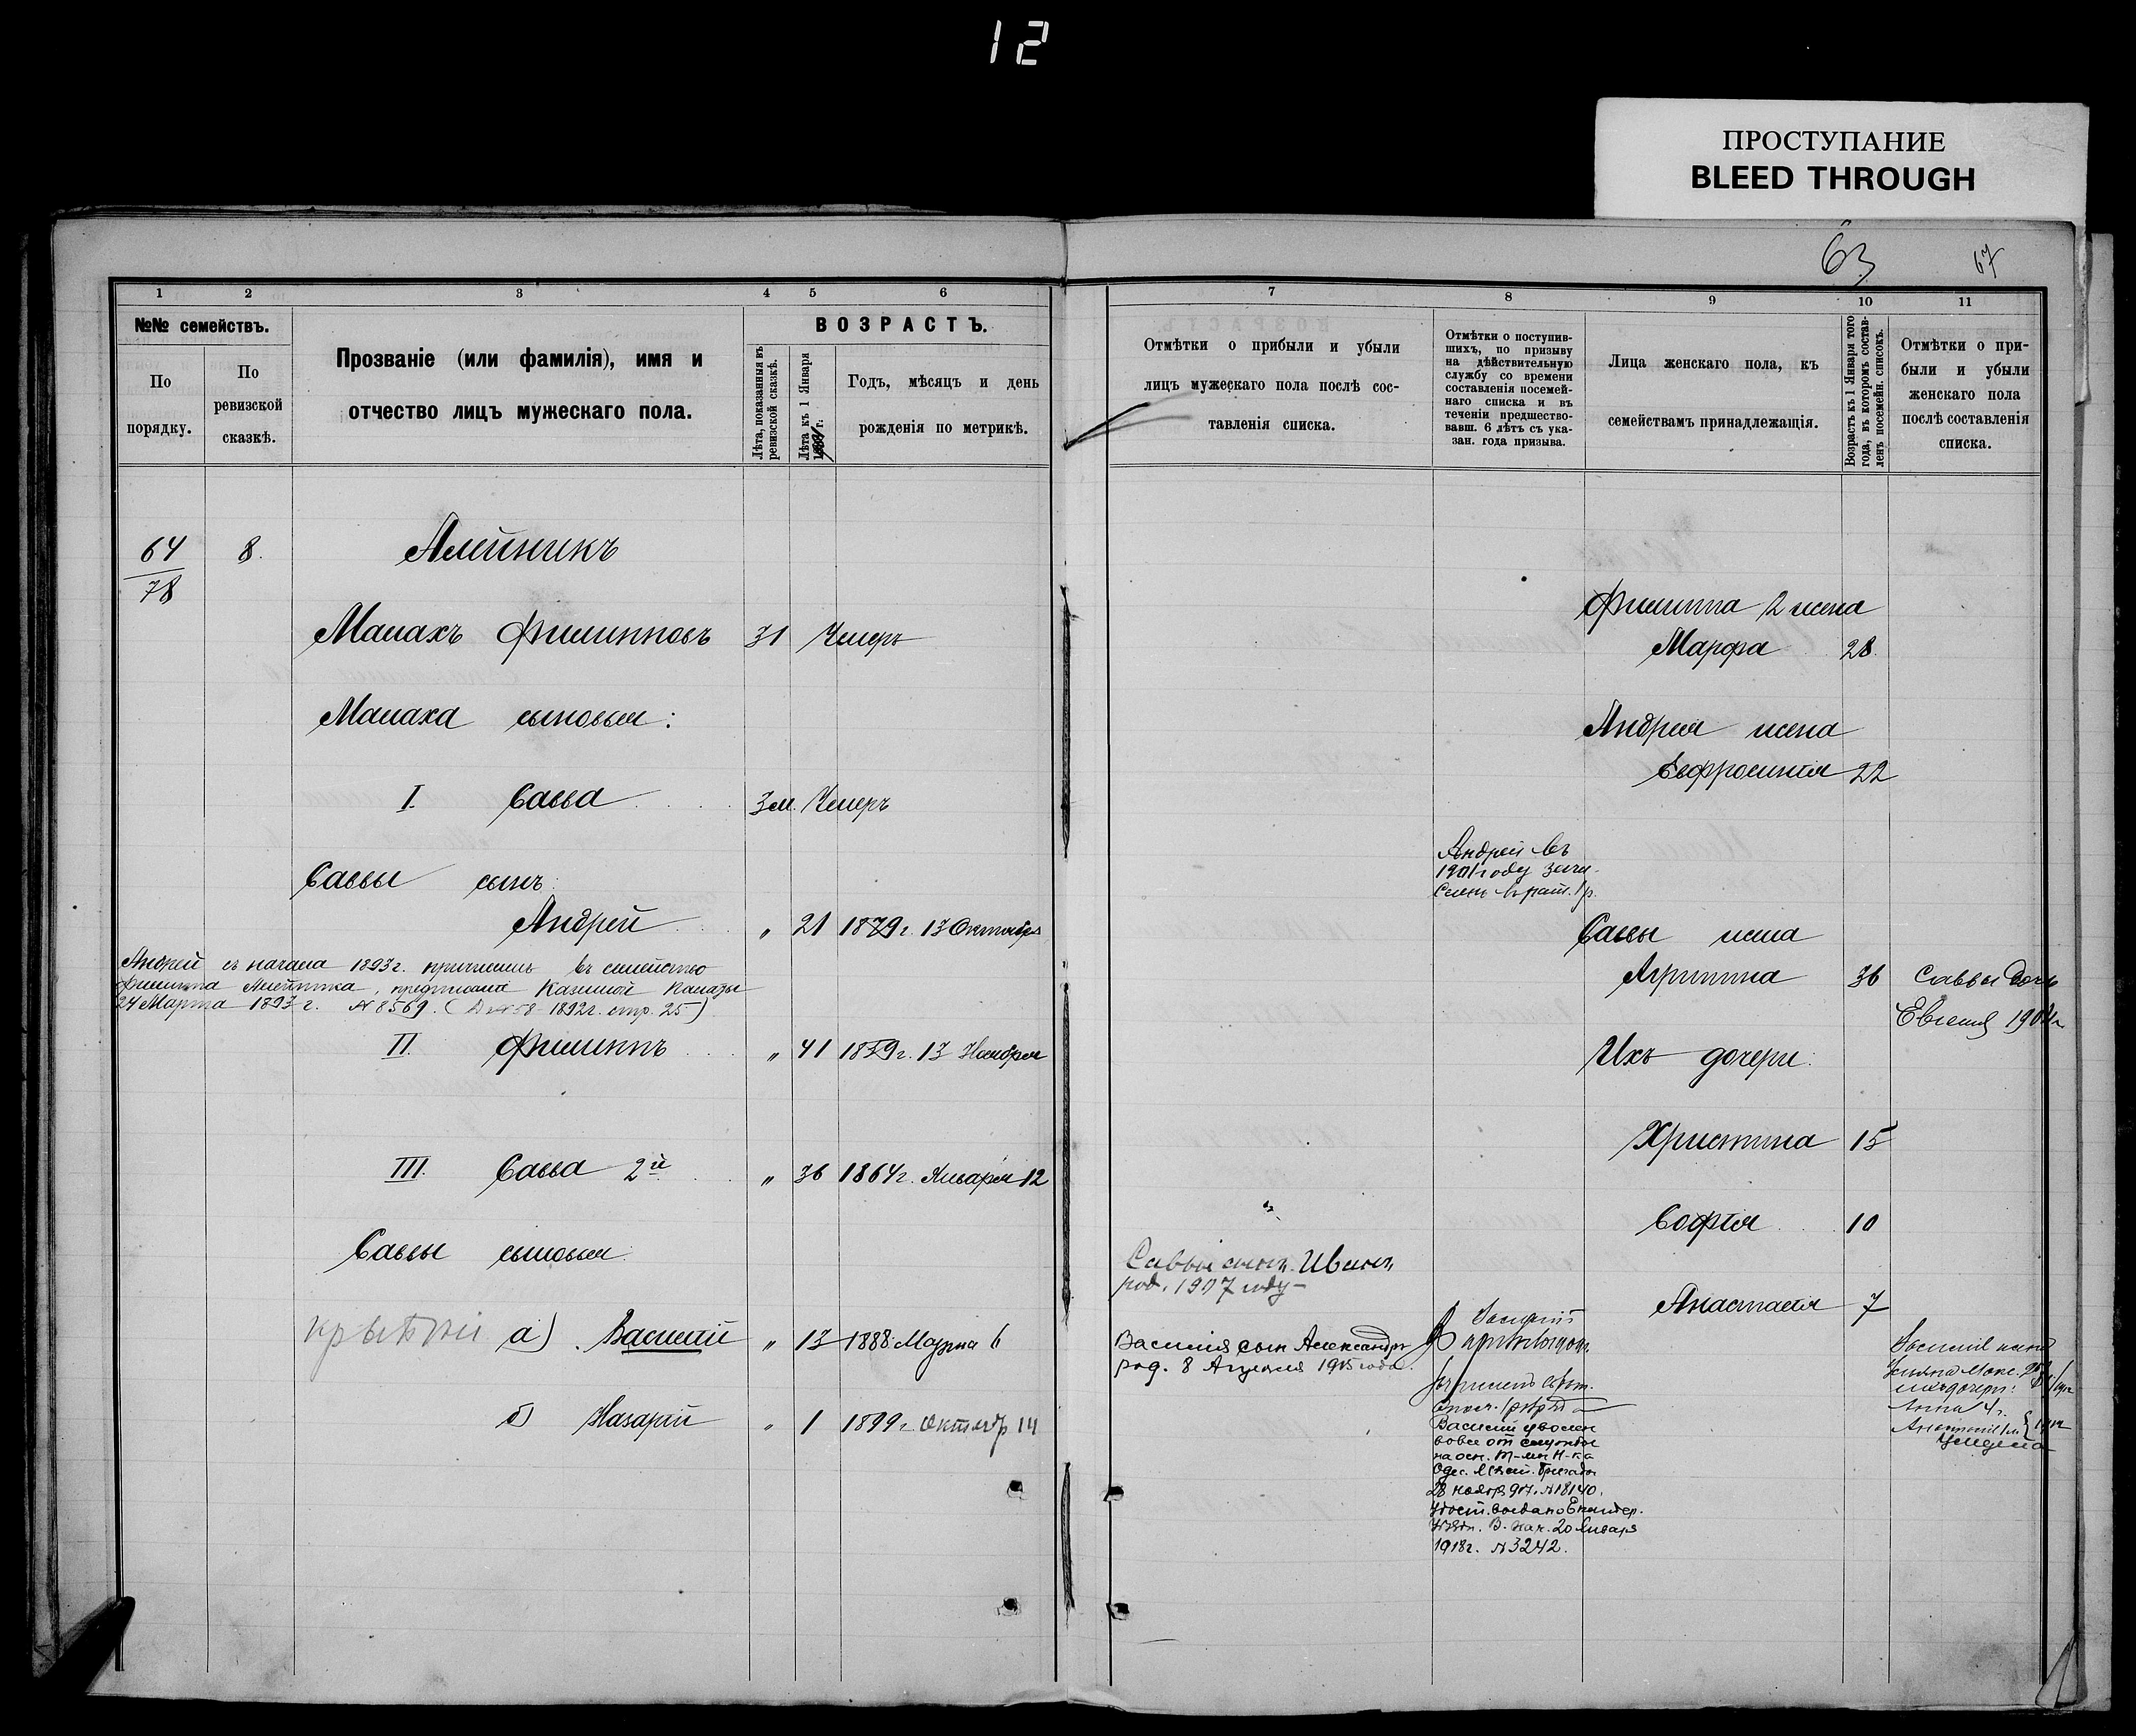 12
ПРОСТУПАНИЕ
BLEED THROUGH
63
67
1
2
3
4
5
6
№№ семействъ.
По
порядку.
По
ревизской
сказкѣ.
Прозваніе (или фамилія), имя и
отчество лицъ мужескаго пола.
ВОЗРАСТЪ.
Лѣта, показанныя въ
ревизской сказкѣ.
Лѣта къ 1 Января
г.
Годъ, мѣсяцъ и день
рожденія по метрикѣ.
64
78
8.
Алейникъ
Малахъ Филипповъ 31 Умеръ
Малаха сыновья:
I. Савва 3 м. Умеръ
Саввы сынъ:
Андрей „ 21 1879 г. 13 Октября
Андрей съ начала 1893 г. причисленъ въ семейство
Филиппа Алейника, Казенной Палаты
24 Марта 1893 г. № 8569. 1892 г. стр. 25)
II. Филиппъ „ 41 1859 г. 13 Ноября
III. Савва 2й „ 36 1864 г. Января 12
Саввы сыновья:
а) Василий „ 13 1888 Марта 6
б) Назарий „ 1 1899 г. Октябр 14
7
8
9
10
11
Отмѣтки о прибыли и убыли
лицъ мужескаго пола послѣ сос-
тавленія списка.
Отмѣтки о поступив-
шихъ, по призыву
на дѣйствительную
службу со времени
составленія посемей-
наго списка и въ
теченіи предшество-
вавш. 6 лѣтъ съ ука-
зан. года призыва.
Лица женскаго пола, къ
семействамъ принадлежащія.
Возрастъ къ 1 Января того
года, въ которомъ состав-
ленъ посемейн. списокъ.
Отмѣтки о при-
были и убыли
женскаго пола
послѣ составленія
списка.
Филиппа 2 жена
Марфа 28
Андрея жена
Евфросинія 22
Андрей въ
1901 году зачи-
слен в рат. 1 р.
Саввы жена
Агрипина 36
Саввы дочь
Евгения
Ихъ дочери:
Христина 15
Софія 10
Анастасія 7
Саввы сынъ Иванъ
род. 1907 году
Василия сын Александръ
род. 8 Апреля 1915 года.
Василий
Василий уволен
вовсе от службы
на осн.
Одес.
28 нояб. 917. № 18140.
Удост. выдано Екатер.
20 Января
1918 г. № 3242.
Василия жена
их дочери:
Анна 4 г.